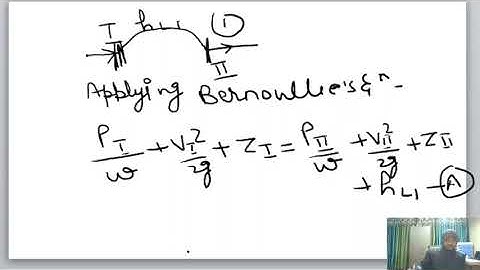 I h_L1 ①
II
Applying Bernoullie's Eⁿ-
P_I/w + V_I²/2g + Z_I = P_II/w + V_II²/2g + Z_II
+ h_L1 - Ⓐ